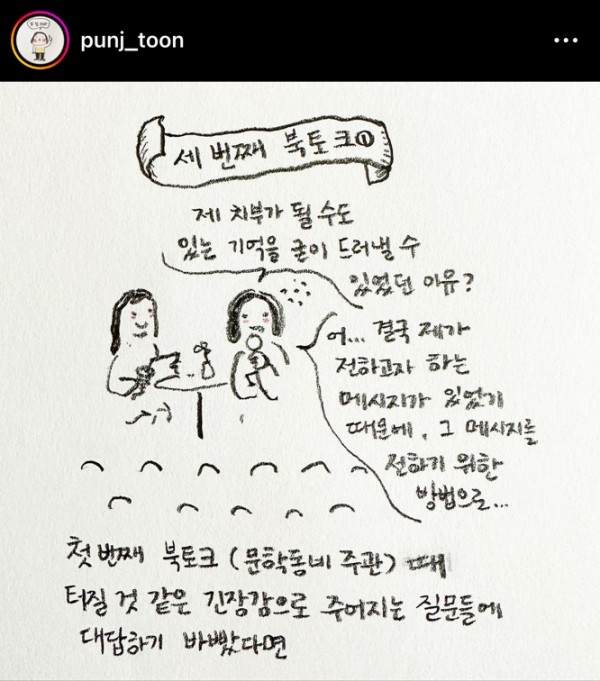 punj_toon
세 번째 북토크①
제 치부가 될 수도
있는 기억을 굳이 드러낼 수
있었던 이유?
어... 결국 제가
전하고자 하는
메시지가 있었기
때문에, 그 메시지를
전하기 위한
방법으로...
첫 번째 북토크 (문학동네 주관) 때
터질 것 같은 긴장감으로 주어지는 질문들에
대답하기 바빴다면